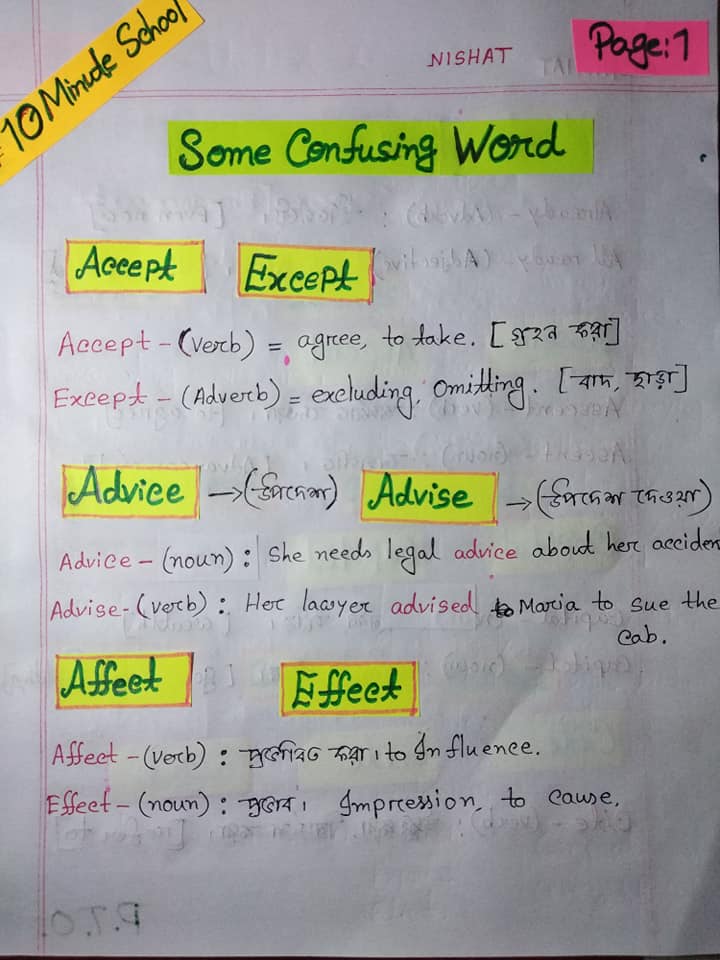 10 Minute School
NISHAT
Page:1
Some Confusing Word
Accept Except
Accept - (verb) = agree, to take. [গ্রহন করা]
Except - (Adverb) = excluding, Omitting. [বাদ, ছাড়া]
Advice → (উপদেশ) Advise → (উপদেশ দেওয়া)
Advice - (noun) : She needs legal advice about her acciden
Advise - (verb) : Her lawyer advised Maria to sue the
Cab.
Affect Effect
Affect - (verb) : প্রভাবিত করা। to Influence.
Effect - (noun) : প্রভাব। Impression, to cause.
P.T.O.